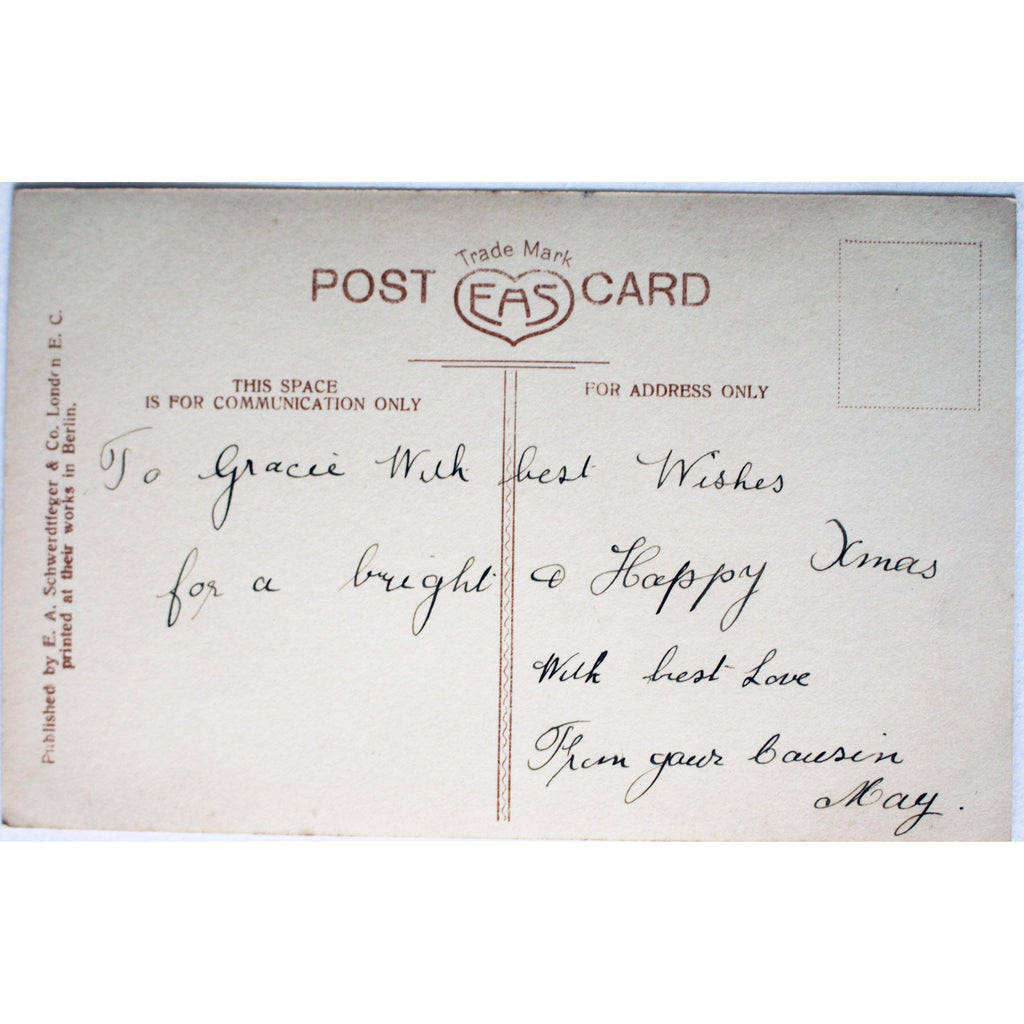 Trade Mark
POST EAS CARD
THIS SPACE
IS FOR COMMUNICATION ONLY
FOR ADDRESS ONLY
Published by E. A. Schwerdtfeger & Co. London E. C.
printed at their works in Berlin.
To Gracie With best Wishes
for a bright & Happy Xmas
With best Love
From your Cousin
May.